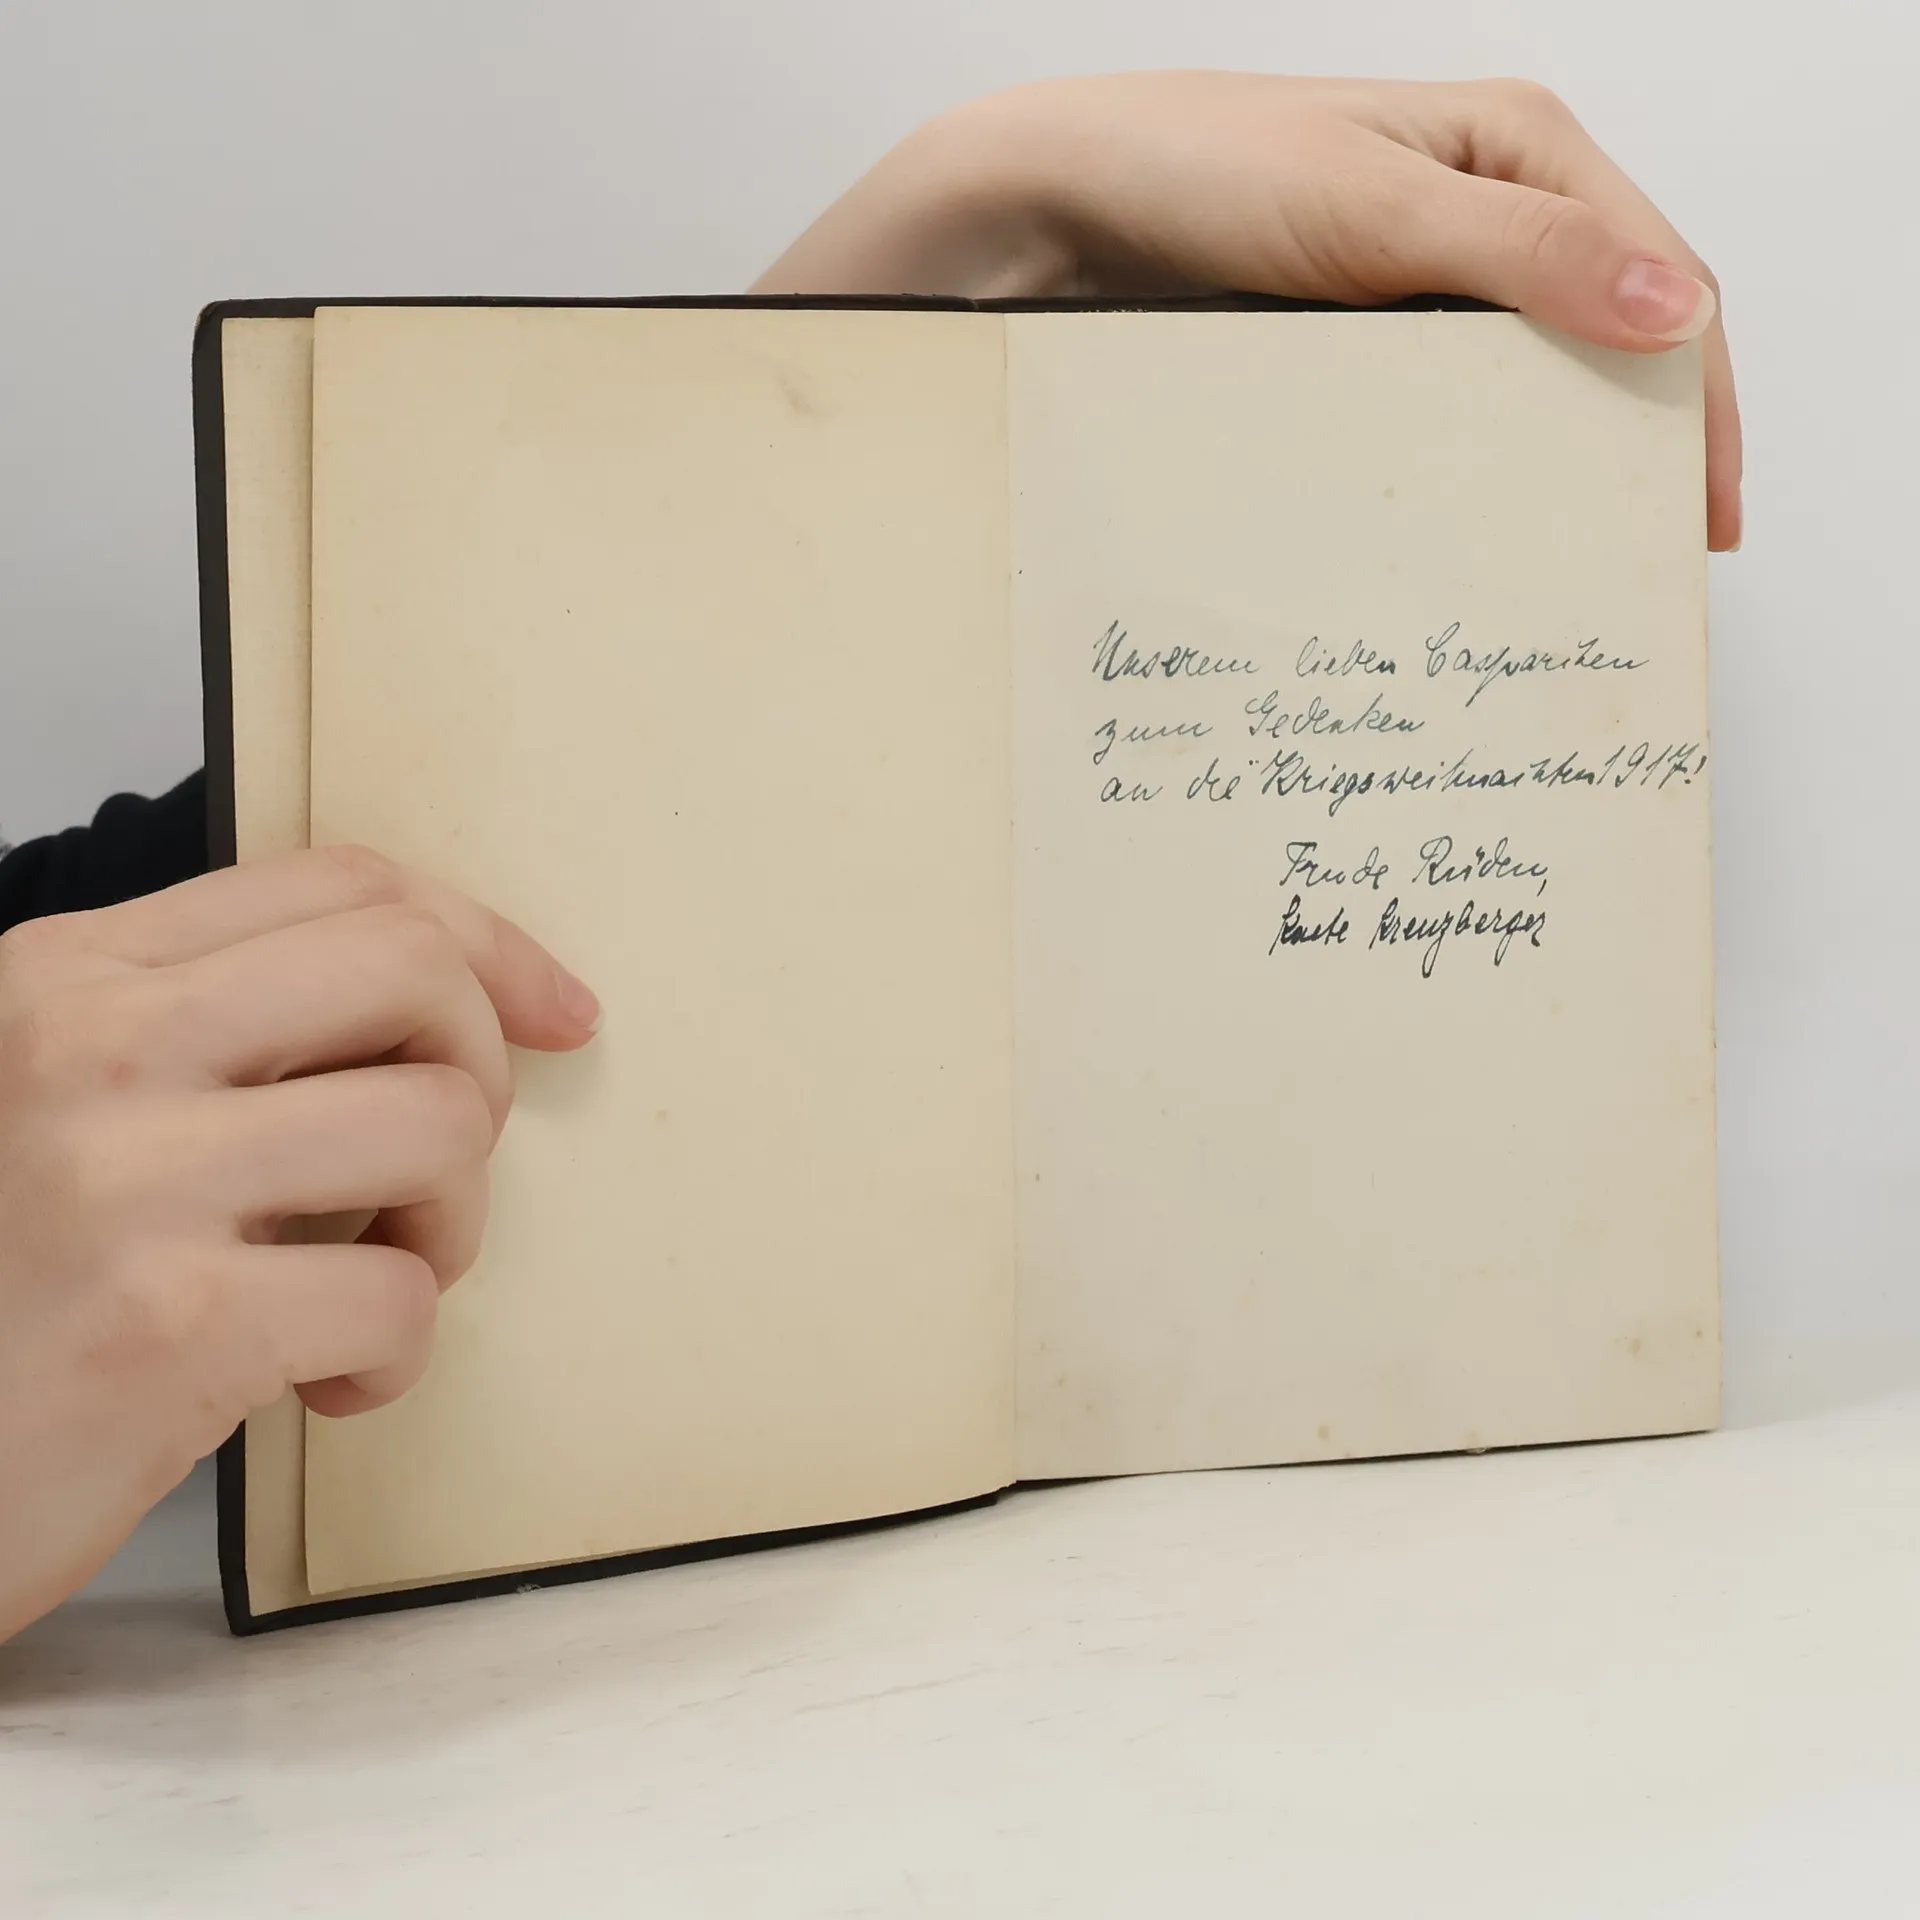 Unserem lieben Casparichen
zum Gedenken
an die Kriegsweihnachten 1917!
Trude Rüden,
Kaete Kreuzberger